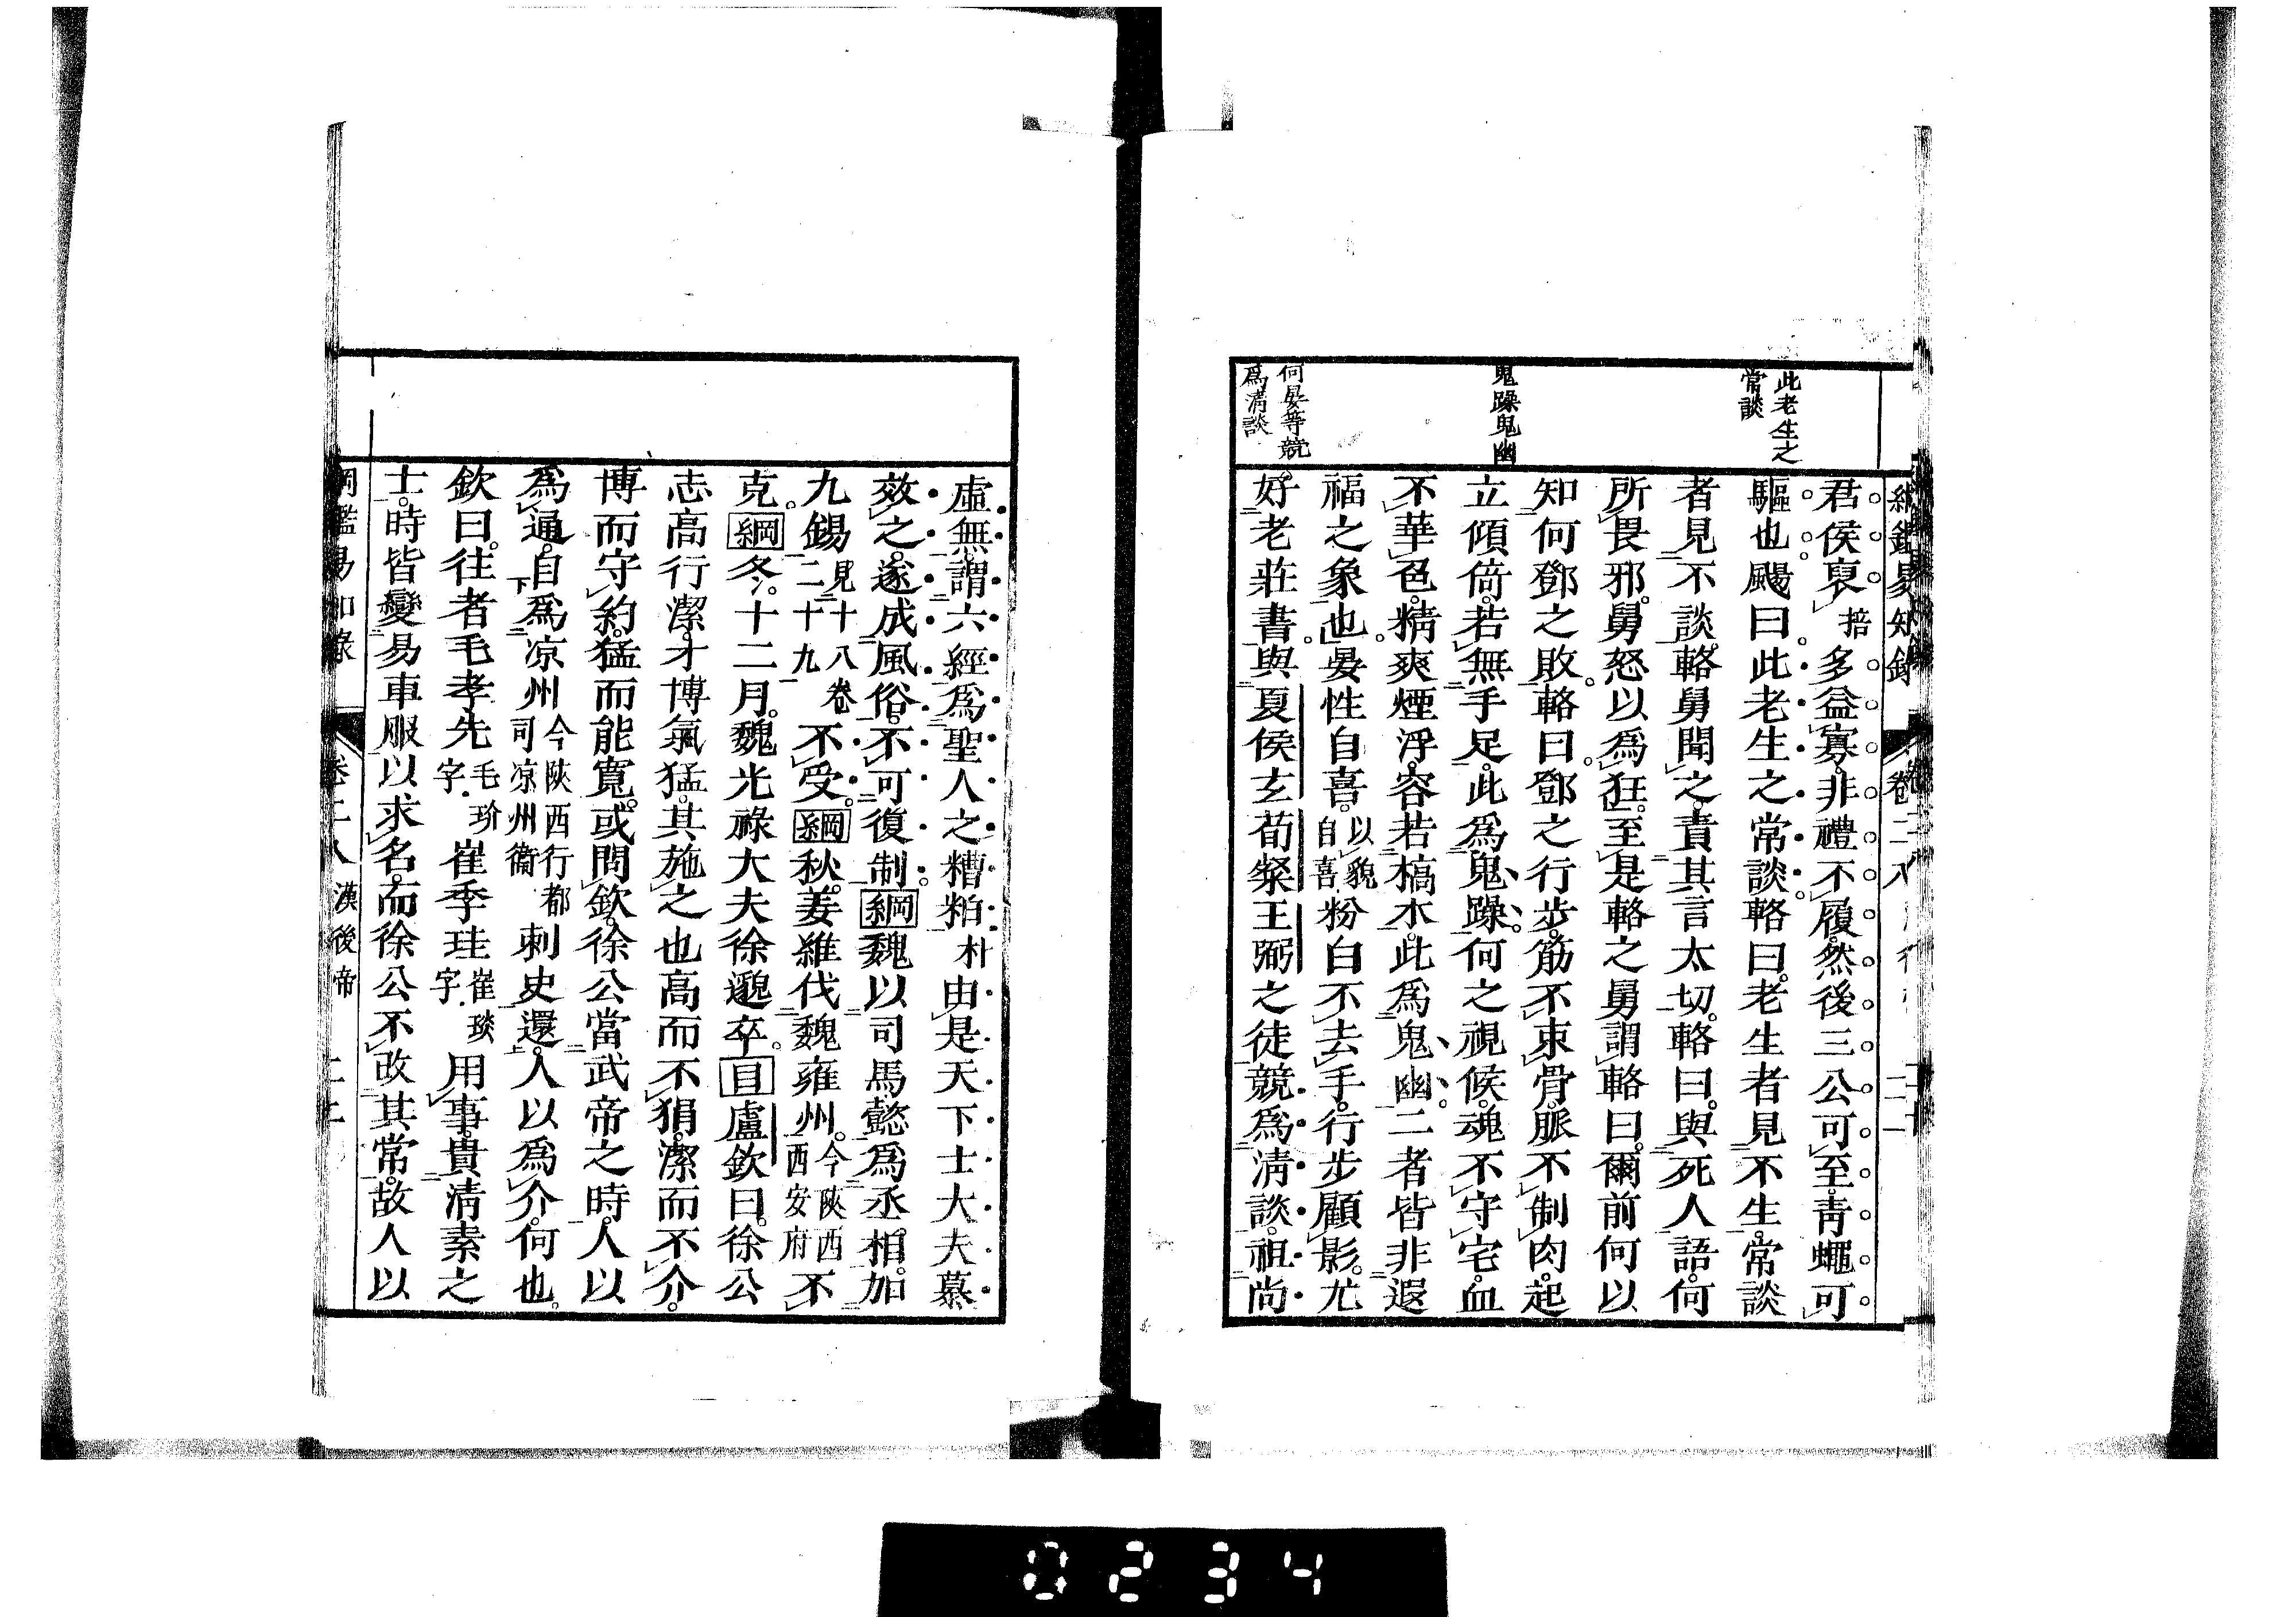 此老生之
常談
鬼躁鬼幽
何晏等競
爲淸談
君侯裒掊多益寡。非禮不履。然後三公可至。靑蠅可
驅也。颺曰。此老生之常談。輅曰。老生者見不生。常談
者見不談。輅舅聞之。責其言太切。輅曰。與死人語。何
所畏邪。舅怒以爲狂。至是輅之舅謂輅曰。爾前何以
知何鄧之敗。輅曰。鄧之行步。筋不束骨。脈不制肉。起
立傾倚。若無手足。此爲鬼躁。何之視候。魂不守宅。血
不華色。精爽煙浮。容若槁木。此爲鬼幽。二者皆非遐
福之象也。晏性自喜。以貌自喜粉白不去手。行步顧影。尤
好老莊書。與夏侯玄荀粲王弼之徒。競爲淸談。祖尚
虛無。謂六經爲聖人之糟粕朴由是天下士大夫慕
效之。遂成風俗。不可復制。綱魏以司馬懿爲丞相。加
九錫見十八卷二十九不受。綱秋。姜維伐魏雍州。今陝西西安府不
克。綱冬。十二月。魏光祿大夫徐邈卒。目盧欽曰。徐公
志高行潔。才博氣猛。其施之也。高而不狷。潔而不介。
博而守約。猛而能寬。或問欽。徐公當武帝之時。人以
爲通。自爲凉州今陝西行都司凉州衞刺史還。人以爲介。何也。
欽曰。往者毛孝先毛玠字崔季珪崔琰字用事。貴淸素之
士。時皆變易車服以求名。而徐公不改其常。故人以
綱鑑易知錄 卷二八 漢後帝
0234